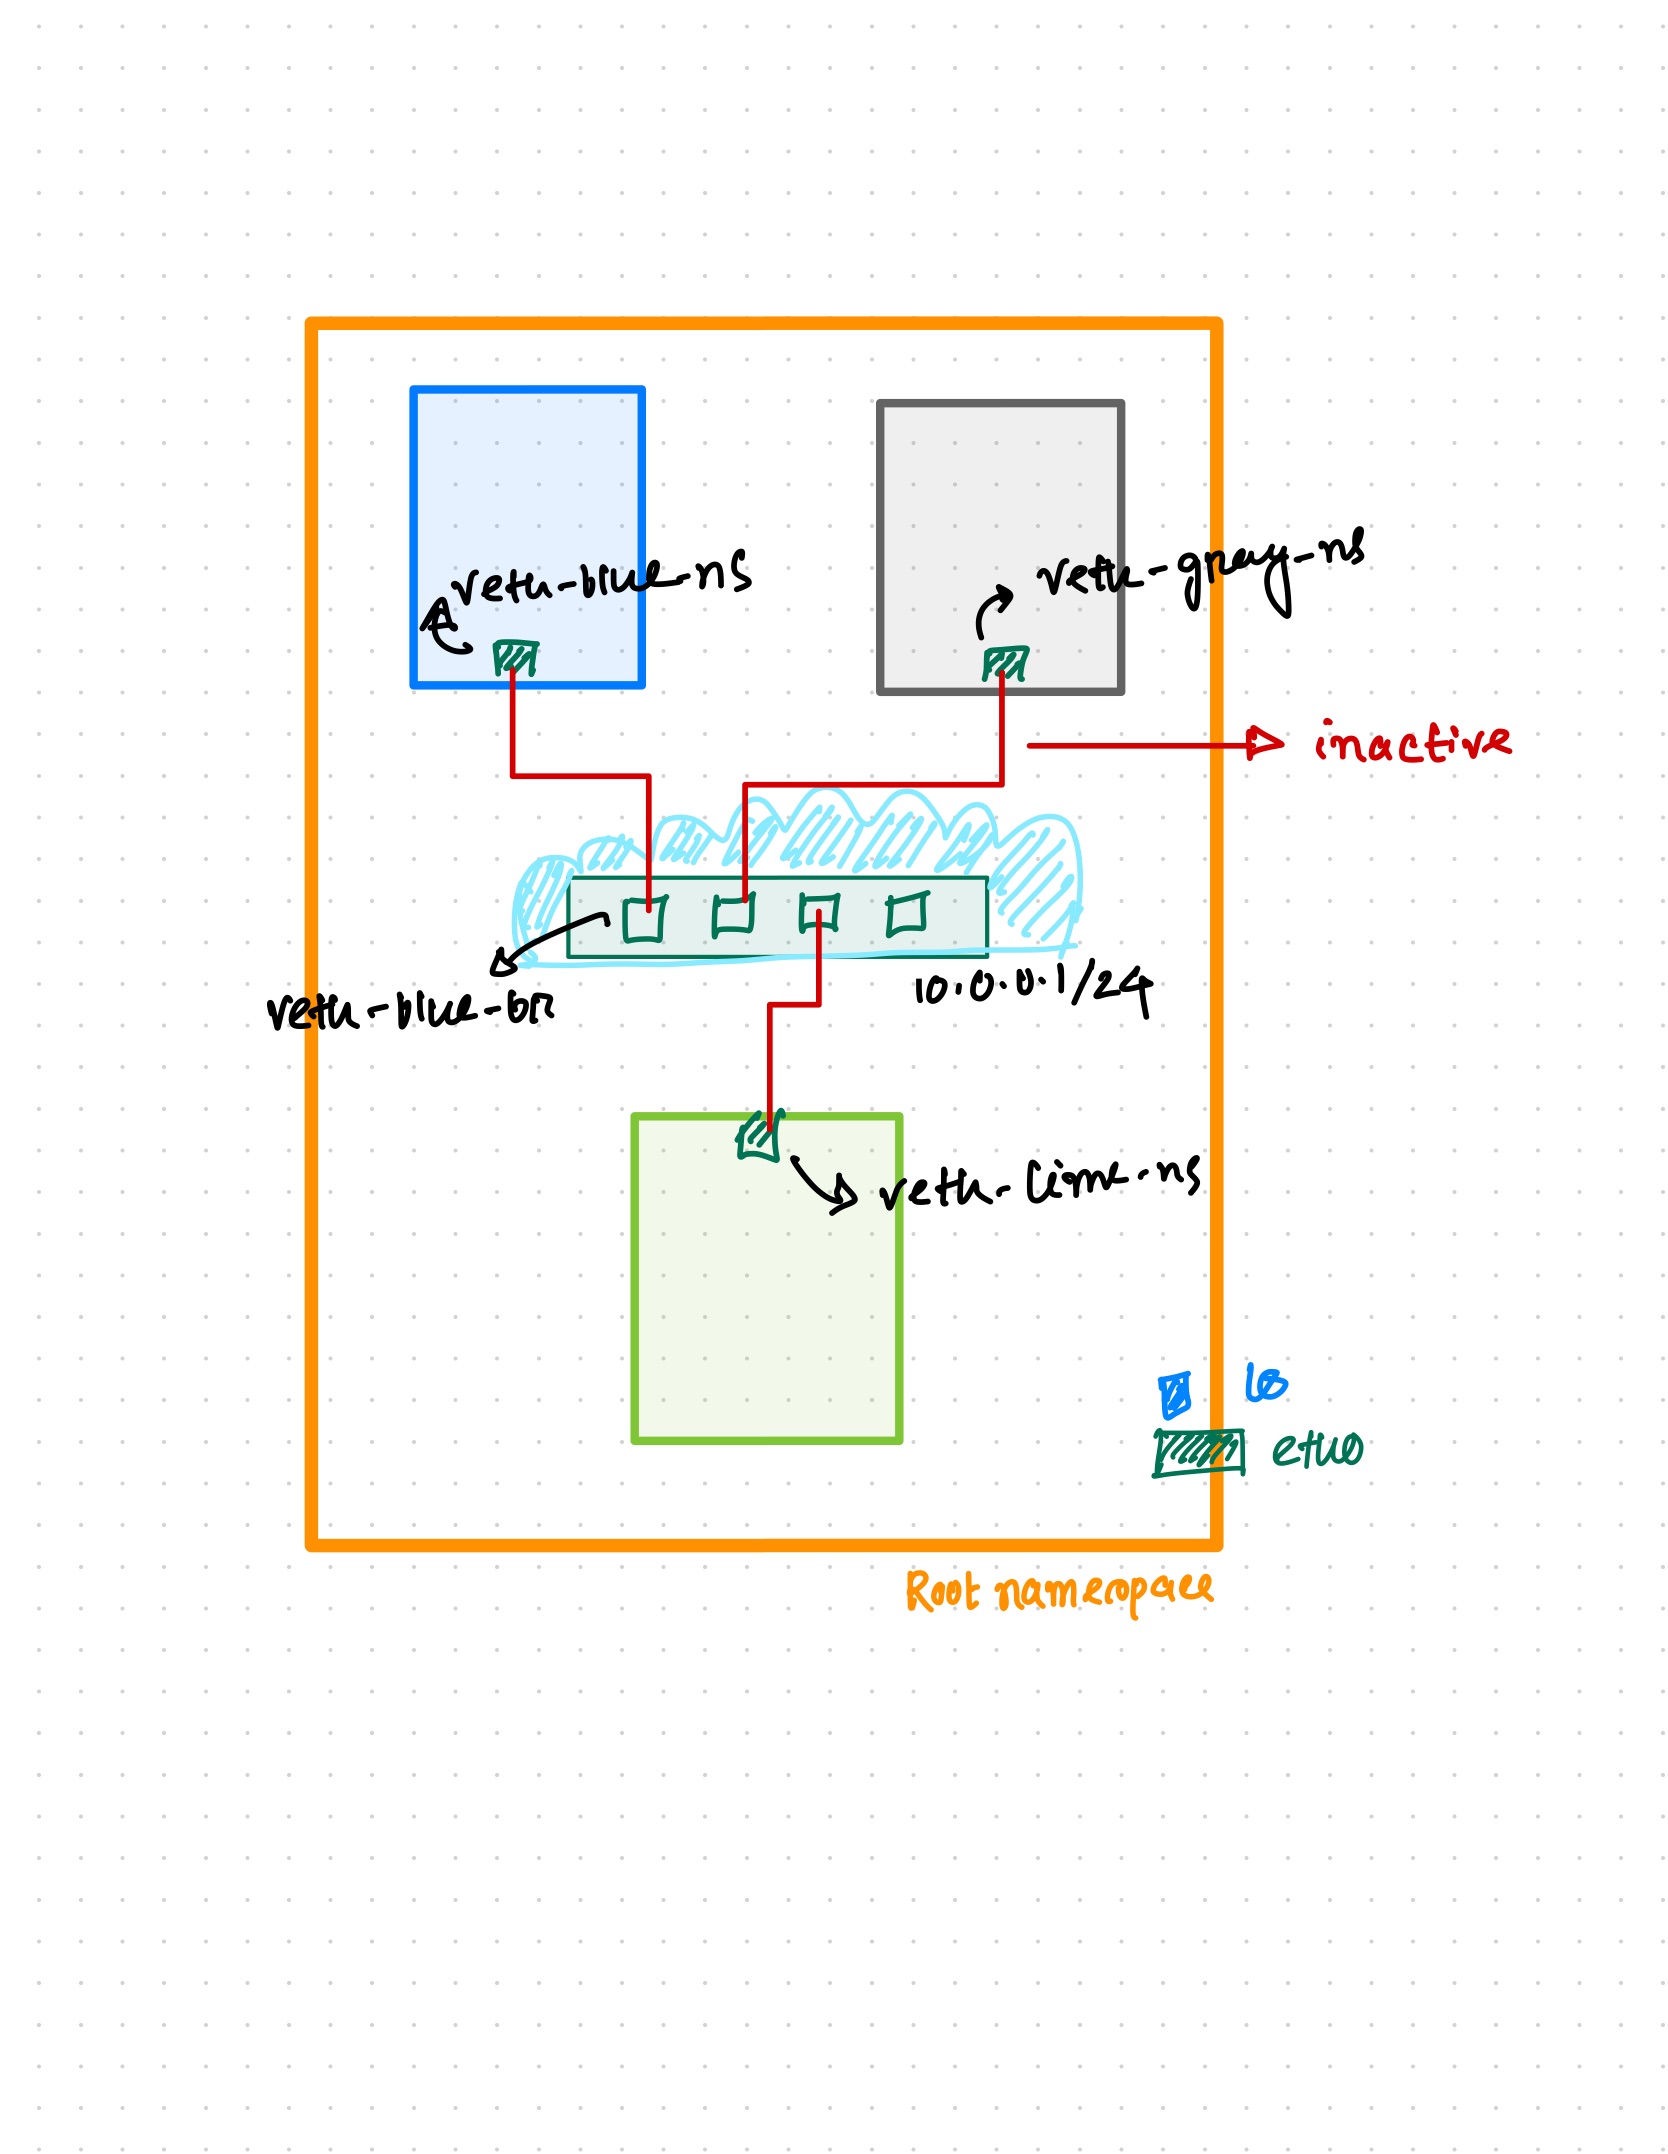 veth-blue-ns
veth-gray-ns
inactive
veth-blue-br
10.0.0.1/24
veth-lime-ns
lo
eth0
Root namespace